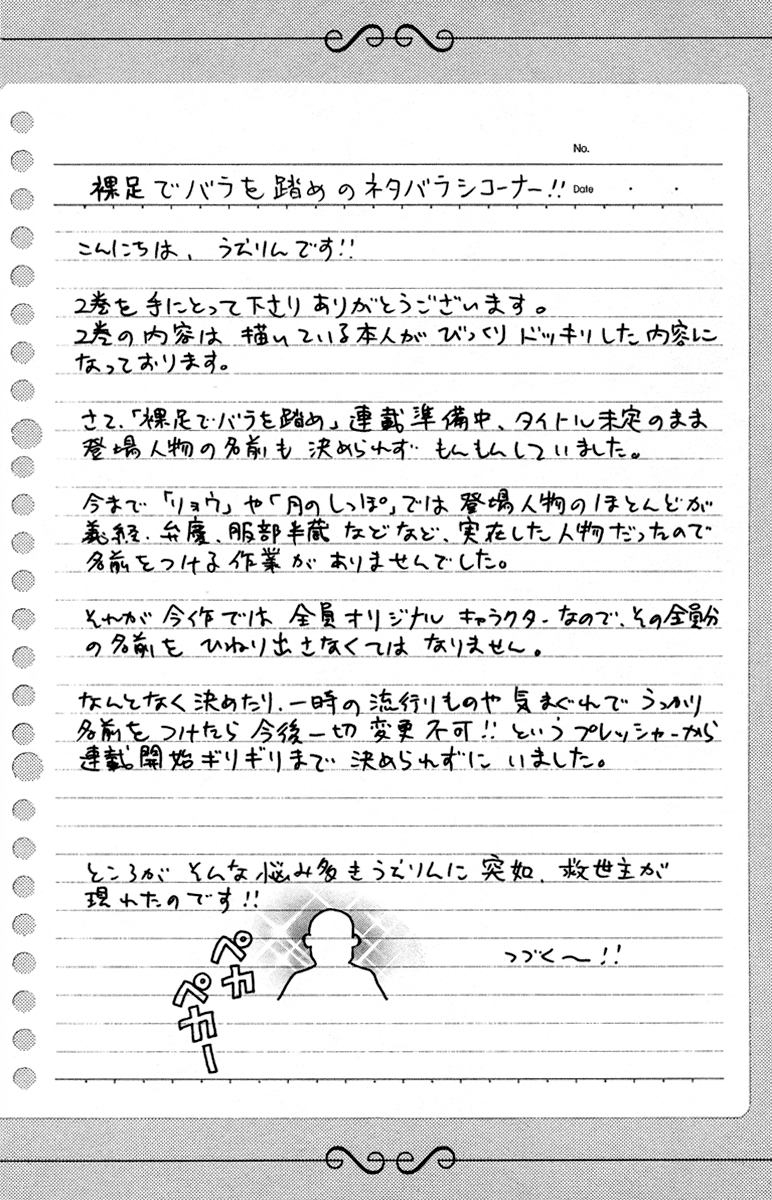 No.
裸足でバラを踏めのネタバラシコーナー!!
Date
こんにちは、うえりんです!!
2巻を手にとって下さりありがとうございます。
2巻の内容は描いている本人がびっくりドッキリした内容に
なっております。
さて、「裸足でバラを踏め」連載準備中、タイトル未定のまま
登場人物の名前も決められずもんもんしていました。
今まで「リョウ」や「月のしっぽ」では登場人物のほとんどが
義経、弁慶、服部半蔵などなど、実在した人物だったので
名前をつける作業がありませんでした。
それが今作では全員オリジナルキャラクターなので、その全員分
の名前をひねり出さなくてはなりません。
なんとなく決めたり、一時の流行りものや気まぐれでうっかり
名前をつけたら今後一切変更不可!!というプレッシャーから
連載開始ギリギリまで決められずにいました。
ところがそんな悩み多きうえりんに突如、救世主が
現れたのです!!
ペカ
ペカー
つづく〜!!